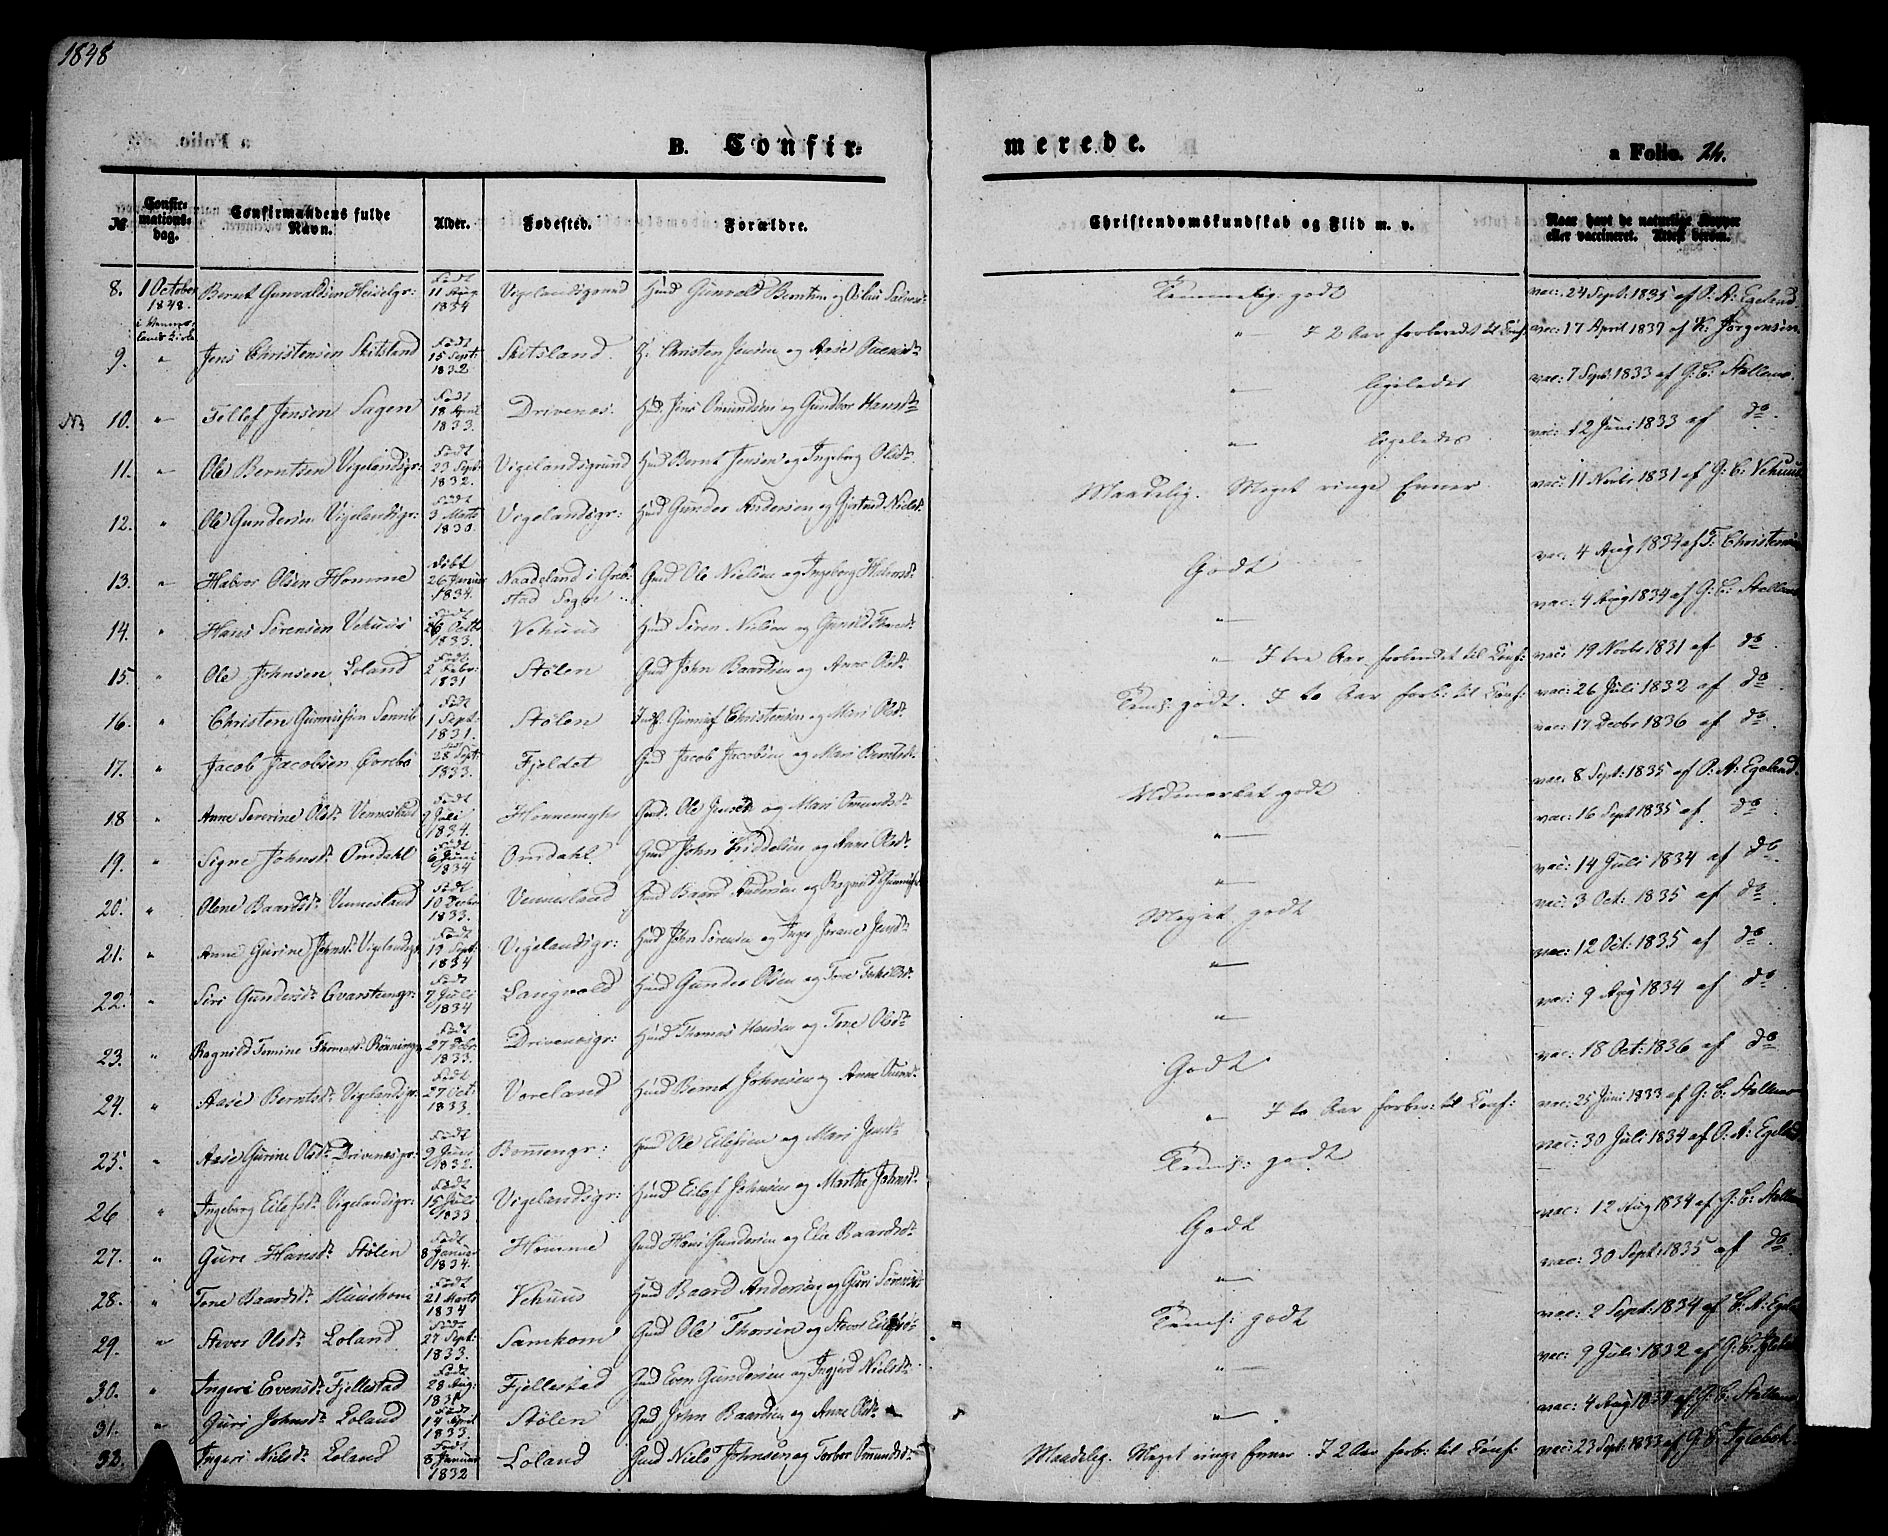 1848
B. Confir=
merede.
a Folio. 26.
№ Confir=mations=dag. Confirmandens fulde Navn. Alder. Fødested. Forældre. Christendomskundskab og Flid m. v. Naar havt de naturlige Kopper eller vaccineret. Attest derom.
8. 1 October 1848. Bernt Gunvaldsen Heiselgr: Født 11 Aug 1834 Vigelandsgrund Huusd Gunvald Berntsen og Temmelig godt vac: 24 Sept: 1835 af O. A: Egeland
9. " Jens Christensen Skitsland Født 15 Sept: 1832 Skitsland. H: Christen Jensen og Aase " I 2 Aar forberedt til Conf: vac: 17 April 1837 af K: Jörgensen
10. " Tellef Jensen Hagen Født 18 April 1833. Drivenes. Huusd Jens Omundsen og Gundbor Hansdtr " ligeledes vac: 7 Sept: 1833 af G: C: Stallemo.
11. " Ole Berntsen Vigelandsgr: Født 23 Sept: 1832. Vigelandsgrund Huusd Bernt Jensen og Ingeborg Olsdtr " ligeledes vac: 12 Juni 1833 af do
12. " Ole Gundersen Vigelandsgr: Født 3 Marts 1830. Vigelandsgr: Huusd Gunder Andersen og Gjertrud Nielsdtr Maadelig. Meget ringe Evner vac: 11 Novbr 1831 af G: C: Vehuus
13. " Halvor Olsen Homme Født 26 Januar 1834. Naadeland i Greb stad Sogn Gmd Ole Nielsen og Ingeborg Halvorsdtr Godt vac: 4 Aug 1834 af T: Christensen
14. " Hans Sörensen Vehuus Født 1833. Vehuus Huusd Sören Nielsen og Gunild " vac: 4 Aug 1834 af G: C: Stallemo
15. " Ole Johnsen Loland Født 2 Febr: 1831 Stølen Gmd John Baardsen og Anne Olsdtr " I tre Aar forberedet til Conf: vac: 19 Novbr 1831 af do
16. " Christen Gunnufsen Født 1 Sept: 1831. Stølen Gunnuf Christensen og Mari Olsdtr Temf: godt. I to Aar forb: til Conf: vac: 26 Juli 1832 af do
17. " Jacob Jacobsen Øvrebø Født 28 Sept: 1833. Fjeldet Gmd Jacob Jacobsen og Mari Berntsdtr " vac: 17 Decbr 1836 af do
18 " Anne Severine Olsdtr Vennesland Født 9 Juli 1834. Honnemyhr Gmd. Ole Jensen og Mari Omundsdtr Udmerket godt vac: 8 Sept: 1835 af O: A: Egeland
19. " Signe Johnsdtr Omdahl Født 6 Juni 1834 Omdahl. Gmd John Kiddelsen og Anne Olsdtr " vac: 16 Sept 1835 af do
20. " Olene Baardsdtr Vennesland Født 10 Decbr 1833. Vennesland Gmd Baard Andersen og Ragnild " vac: 14 Juli 1834 af do
21. " Anne Gurine Johnsdtr Vigelandsgr Født 19 Sept: 1834 Vigelandsgr: Huusd John Sörensen og Inge Jensdtr Meget godt vac: 3 Oct: 1835 af do
22. " Siri Gundersdtr Født 7 Juli 1834 Langvold Huusd Gunder Olsen og Tone " vac: 12 Oct: 1835 af do
23. " Ragnild Tomine Thomasdtr Rönningen Født 27 1833. Drivenesgr: Huusd Thomas Hansen og Tone Olsdtr " vac: 9 Aug 1834 af do
24. " Aase Berntsdtr Vigelandsgr: Født 27 Oct: 1833. Voreland Huusd Bernt Johnsen og Anne Godt vac: 18 Oct: 1836 af do
25. " Aase Gurine Olsdtr Drivenesgr: Født 9 Juni 1832. Bommengr: Huusd Ole Eilefsen og Mari Jensdtr " I to Aar forber: til Conf: vac: 25 Juni 1833 af G: C: Stallemo
26 " Ingeborg Eilefsdtr Vigelandsgr: Født 15 Juli 1833 Vigelandsgr: Huusd Eilef Johnsen og Marthe Johnsdtr Temf: godt vac: 30 Juli 1834 af O: A: Egeland
27. " Gure Hansdtr Stølen Født 8 Januar 1834. Homme Gmd Hans Gundersen og Else Baardsdtr Godt vac: 12 Aug 1834 af G: C: Stallemo
28. " Tone Baardsdtr Muushom Født 21 Marts 1834 Vehuus Huusd Baard Andersen og Guri Sörensdtr " vac: 30 Sept: 1835 af do
29. " Stever Olsdtr Loland Født 27 Sept: 1833. Samkom Gmd Ole Thorsen og Temf: godt vac: 2 Sept: 1834 af
30. " Ingeri Evensdtr Fjellestad Født 28 Aug: 1831 Fjellestad Gmd Even Gundersen og Ingjerd Nielsdtr " vac: 9 Juli 1832 af
31. " Guri Johnsdtr Loland Født 14 April 1833. Stølen Gmd John Baardsen og Anne Olsdtr " vac: 4 Aug 1834 af G: C: Stallemo
32. " Ingeri Nielsdtr Loland Født 8 Januar 1832 Loland Gmd Niels Johnsen og Torbor Omundsdtr Maadelig. Meget ringe Evner. I 2 Aar forb: til Conf: vac: 23 Sept: 1833 af